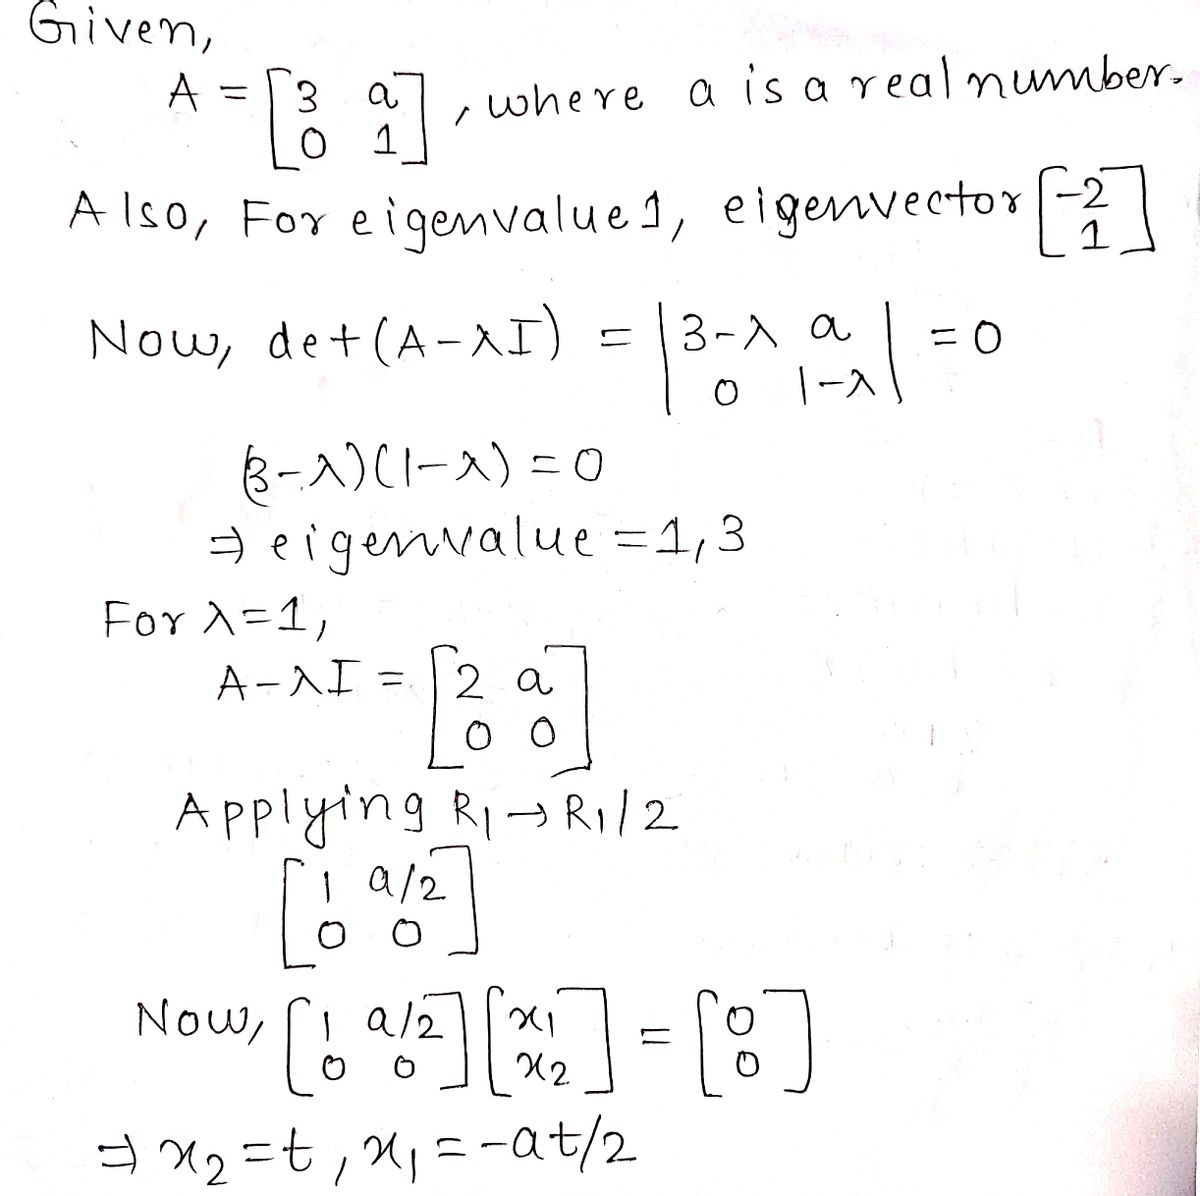 Given,
A = [3 a
0 1], where a is a real number.
Also, For eigenvalue 1, eigenvector [-2
1]
Now, det(A-λI) = |3-λ a
0 1-λ| = 0
(3-λ)(1-λ) = 0
⇒ eigenvalue = 1,3
For λ=1,
A-λI = [2 a
0 0]
Applying R₁ → R₁/2
[1 a/2
0 0]
Now, [1 a/2
0 0] [x₁
x₂] = [0
0]
⇒ x₂ = t, x₁ = -at/2